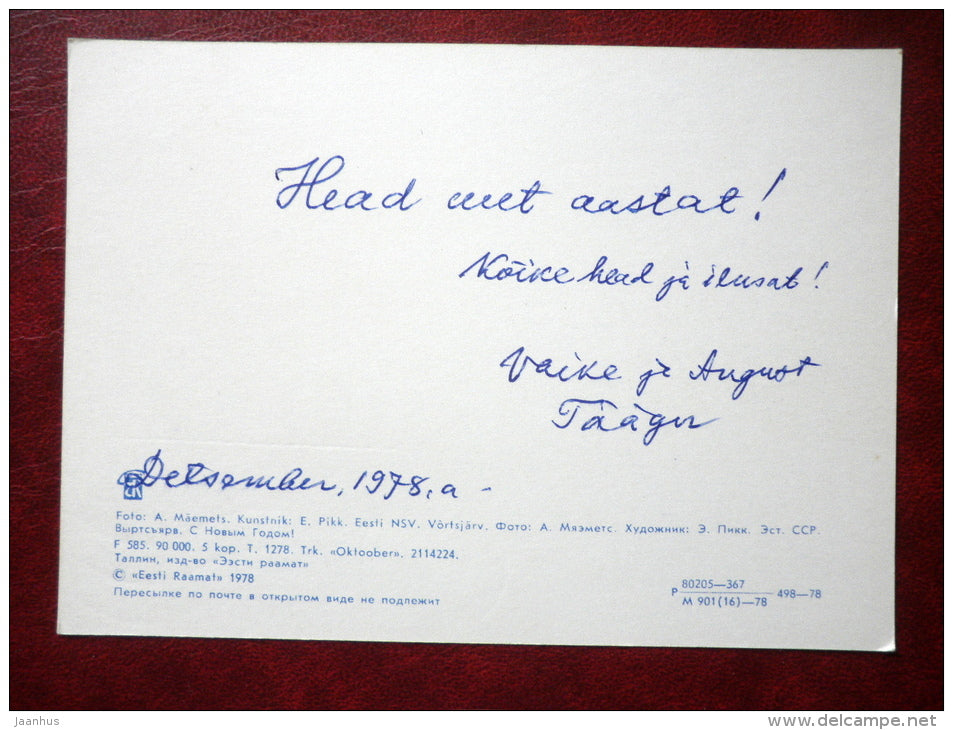 Head uut aastat!
Kõike head ja ilusat!
Vaike ja August
Detsember, 1978. a -
Foto: A. Mäemets. Kunstnik: E. Pikk. Eesti NSV. Võrtsjärv. Фото: А. Мяэметс. Художник: Э. Пикк. Эст. ССР.
Выртсъярв. С Новым Годом!
F 585. 90 000. 5 kop. T. 1278. Trk. «Oktoober». 2114224.
Таллин, изд-во «Ээсти раамат»
© «Eesti Raamat» 1978
Пересылке по почте в открытом виде не подлежит
Р 80205—367 498—78
М 901(16)—78
jaanhus
www.delcampe.net